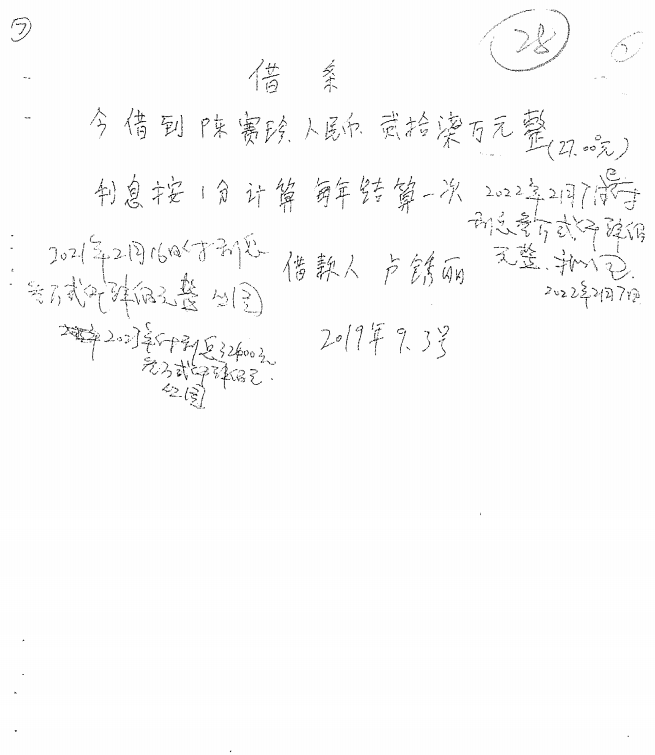 ⑦
28
借条
今借到陈赛玲.人民币.贰拾柒万元整(27.00元)
利息按1分计算每年结算一次
2022年2月7
利息叁万贰仟肆佰
元整.
2022年2月7日
2021年2月16日付利息
叁万贰仟肆佰元整
借款人 卢锈丽
2023年付利息32400元
叁万贰仟肆佰元.
2019年9.3号